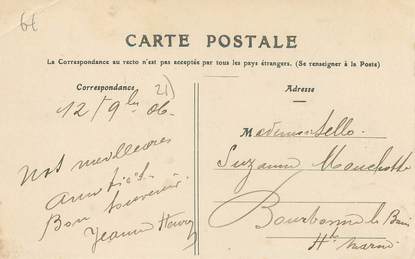 6t
CARTE POSTALE
La Correspondance au recto n'est pas acceptée par tous les pays étrangers. (Se renseigner à la Poste)
Correspondance
21)
Adresse
12/9bre 06.
Nos meilleures
amitiés
Bon souvenir.
Jeanne Henry
Mademoiselle.
Suzanne
Bourbonne les Bains
Hte Marne